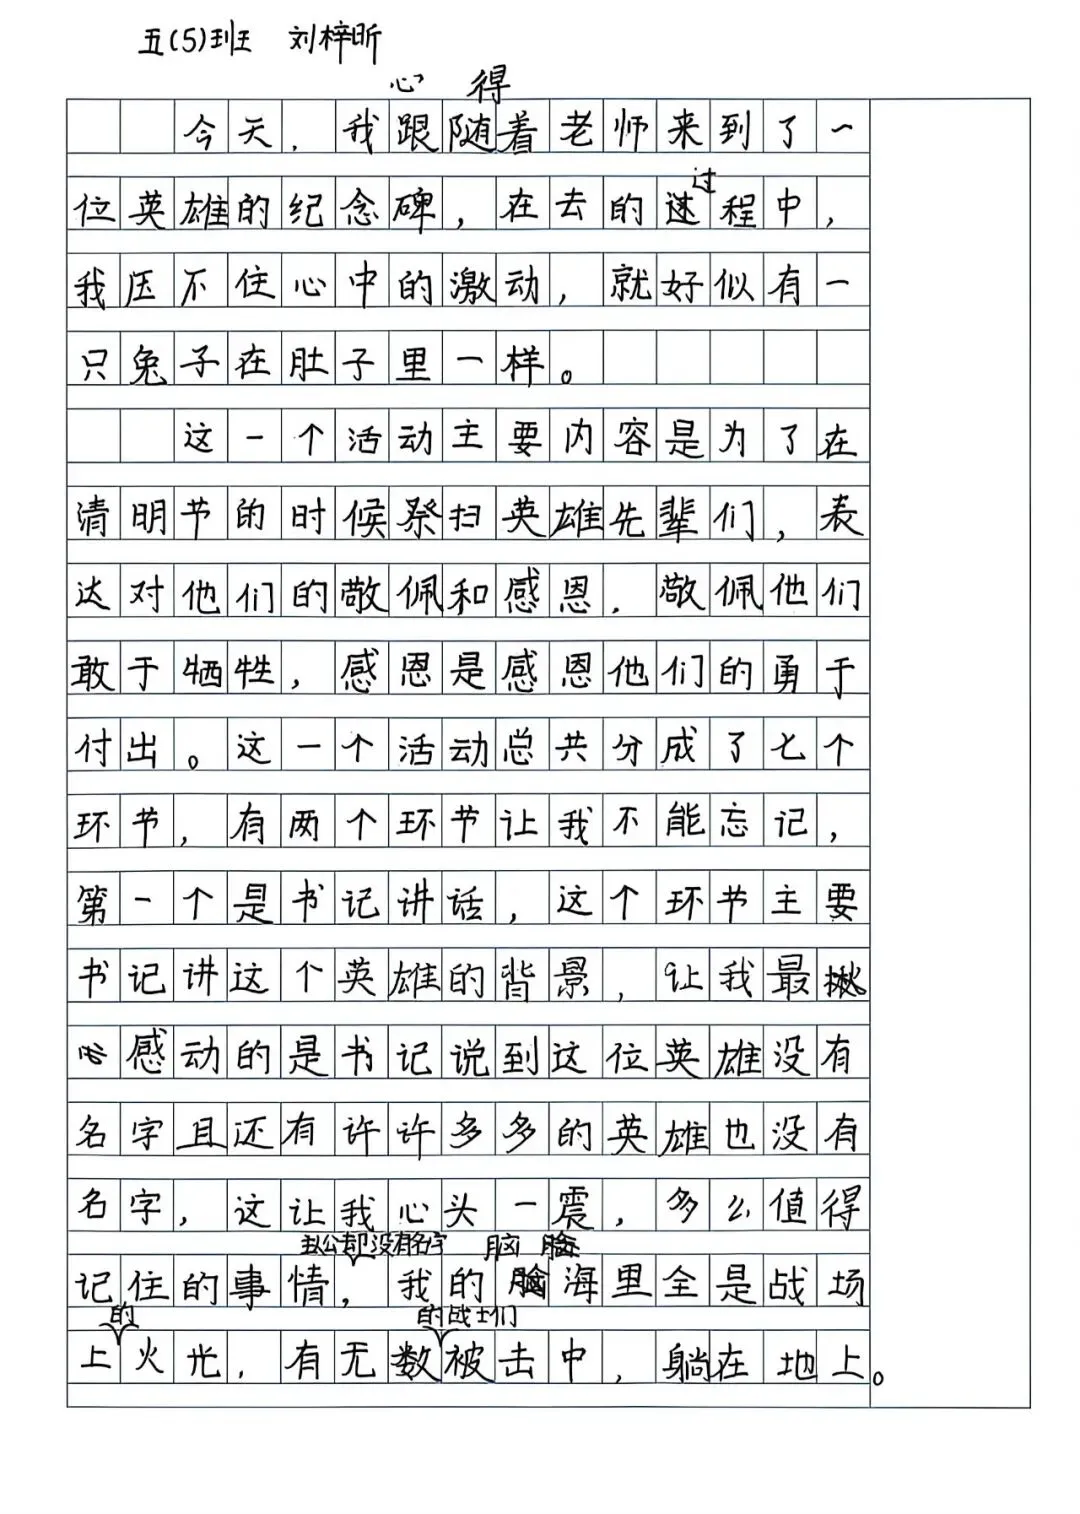 五(5)班 刘梓昕
心得
今天，我跟随着老师来到了一
位英雄的纪念碑，在去的过程中，
我压不住心中的激动，就好似有一
只兔子在肚子里一样。
这一个活动主要内容是为了在
清明节的时候祭扫英雄先辈们，表
达对他们的敬佩和感恩，敬佩他们
敢于牺牲，感恩是感恩他们的勇于
付出。这一个活动总共分成了七个
环节，有两个环节让我不能忘记，
第一个是书记讲话，这个环节主要
书记讲这个英雄的背景，让我最
感动的是书记说到这位英雄没有
名字且还有许许多多的英雄也没有
名字，这让我心头一震，多么值得
却没有名字 脑
记住的事情，我的海里全是战场
的 的战士们
上火光，有无数被击中，躺在地上。